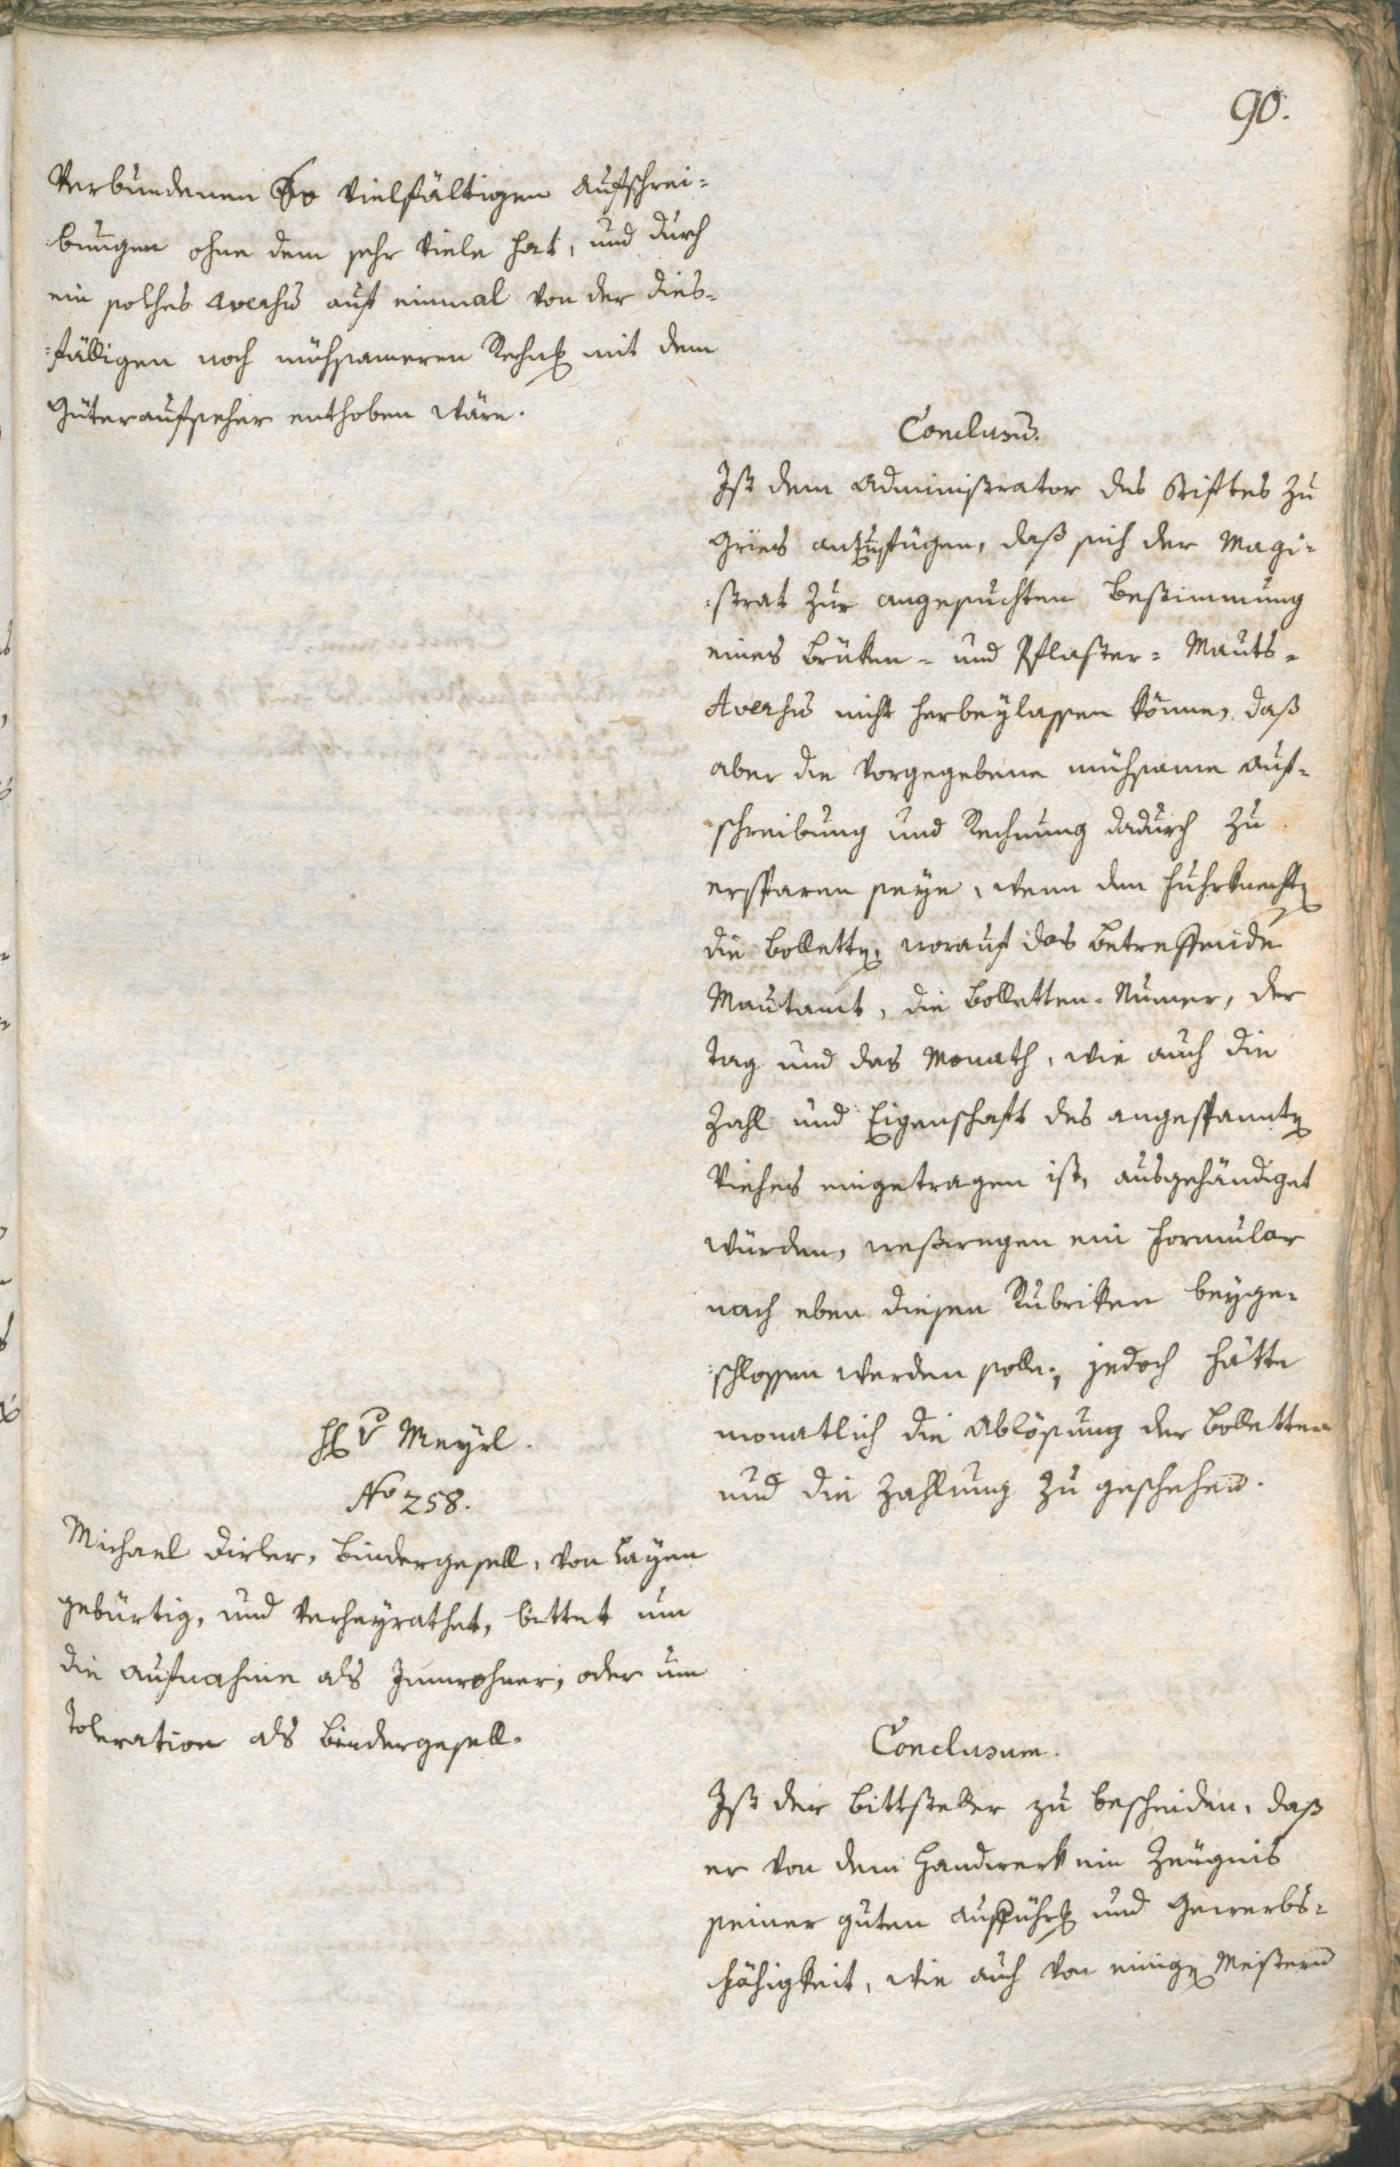 90.
Verbundenen so vielfältigen Aufschrei=
bungen ohne dem sehr viele hat, und durch
ein solches Aversu̅ auf einmal von der dies=
=fälligen noch mühsameren Rechng mit dem
Güteraufseher enthoben wäre.
Conclusu̅.
Ist dem Administrator des Stiftes zu
Gries anzufügen, daß sich der Magi=
=strat zur angesuchten Bestimmung
eines Brüken= und Pflaster= Mauts=
Aversu̅ nicht herbeylassen könne, daß
aber die vorgegebene mühsame Auf=
schreibung und Rechnung dadurch zu
ersparen seye, wenn den Fuhrknechten
die Bolletten, worauf das betreffende
Mautamt, die Bolletten=Numer, der
Tag und das Monath, wie auch die
Zahl und Eigenschaft des angespannten
Viehes eingetragen ist, ausgehändiget
würden, weßwegen ein Formular
nach eben diesen Rubriken beyge=
=schlossen werden solle; jedoch hätte
monatlich die Ablösung der Bolletten
und die Zahlung zu geschehen.
H v Meyrl.
No 258.
Michael Dirler, Bindergesell, von Layen
gebürtig, und verheyrathet, bittet um
die Aufnahme als Innwohner, oder um
Toleration als Bindergesell.
Conclusum.
Ist der Bittsteller zu bescheiden, daß
er von dem Handwerk ein Zeugnis
seiner guten Aufführg und Gewerbs=
fähigkeit, wie auch von einigen Meistern